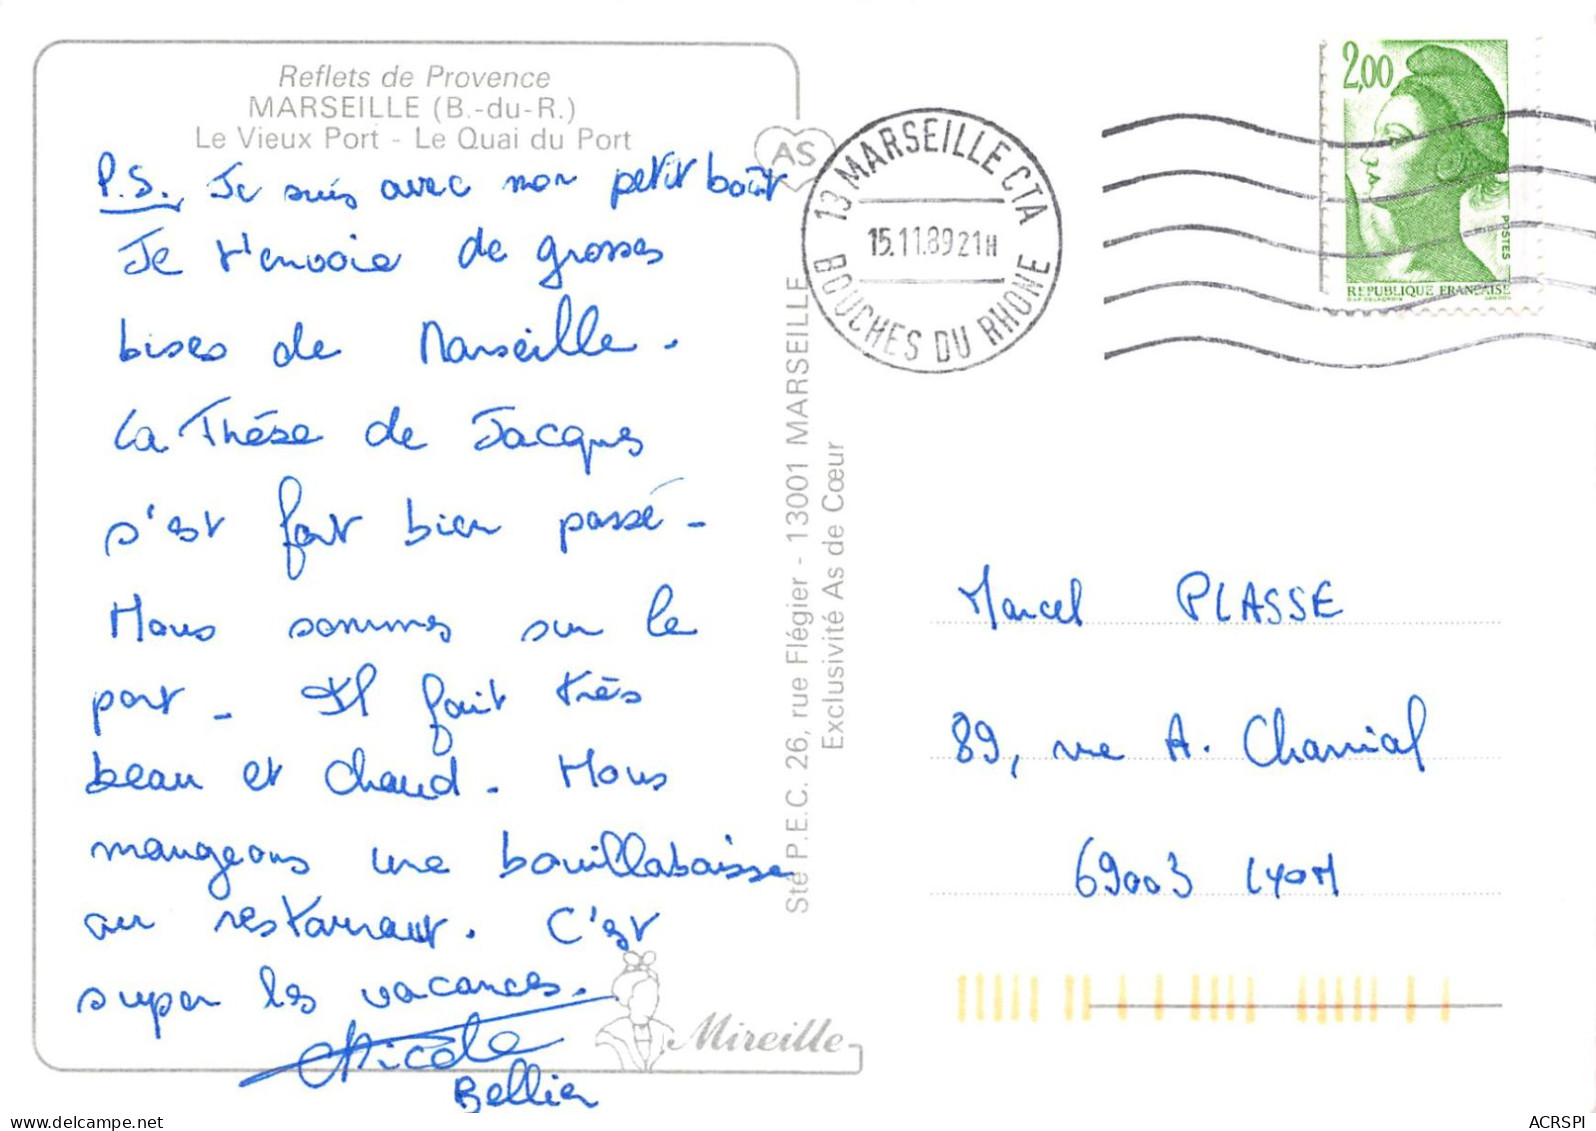 Reflets de Provence
MARSEILLE (B.-du-R.)
Le Vieux Port - Le Quai du Port
AS
P.S. Je suis avec mon petit boût
Je t'envoie de grosses
bises de Marseille.
La Thèse de Jacques
s'est fort bien passé -
Nous sommes sur le
port - Il fait très
beau et chaud - Nous
mangeons une bouillabaisse
au restaurant. C'est
super les vacances.
Nicole
Bellier
Mireille
Sté P.E.C. 26, rue Flégier - 13001 MARSEILLE
Exclusivité As de Cœur
13 MARSEILLE CTA
15.11.89 21H
BOUCHES DU RHONE
2,00
POSTES
REPUBLIQUE FRANÇAISE
Marcel PLASSE
89, rue A. Charrial
69003 LYON
www.delcampe.net
ACRSPI